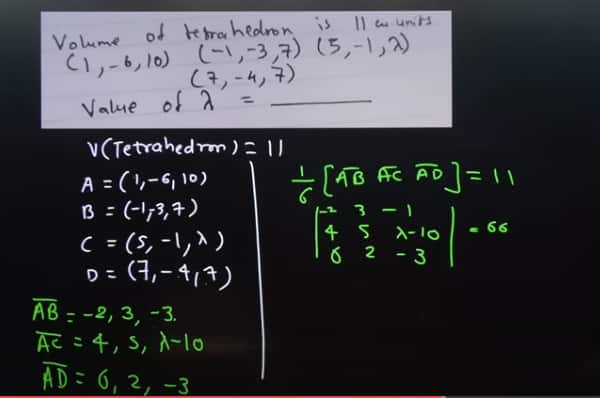 Volume of tetrahedron is 11 cu units
(1, -6, 10) (-1, -3, 7) (5, -1, λ)
(7, -4, 7)
Value of λ = ________
V(Tetrahedron) = 11
A = (1, -6, 10)
B = (-1, -3, 7)
C = (5, -1, λ)
D = (7, -4, 7)
AB = -2, 3, -3.
AC = 4, 5, λ-10
AD = 6, 2, -3
1/6 [AB AC AD] = 11
|-2 3 -1
4 5 λ-10
6 2 -3| = 66